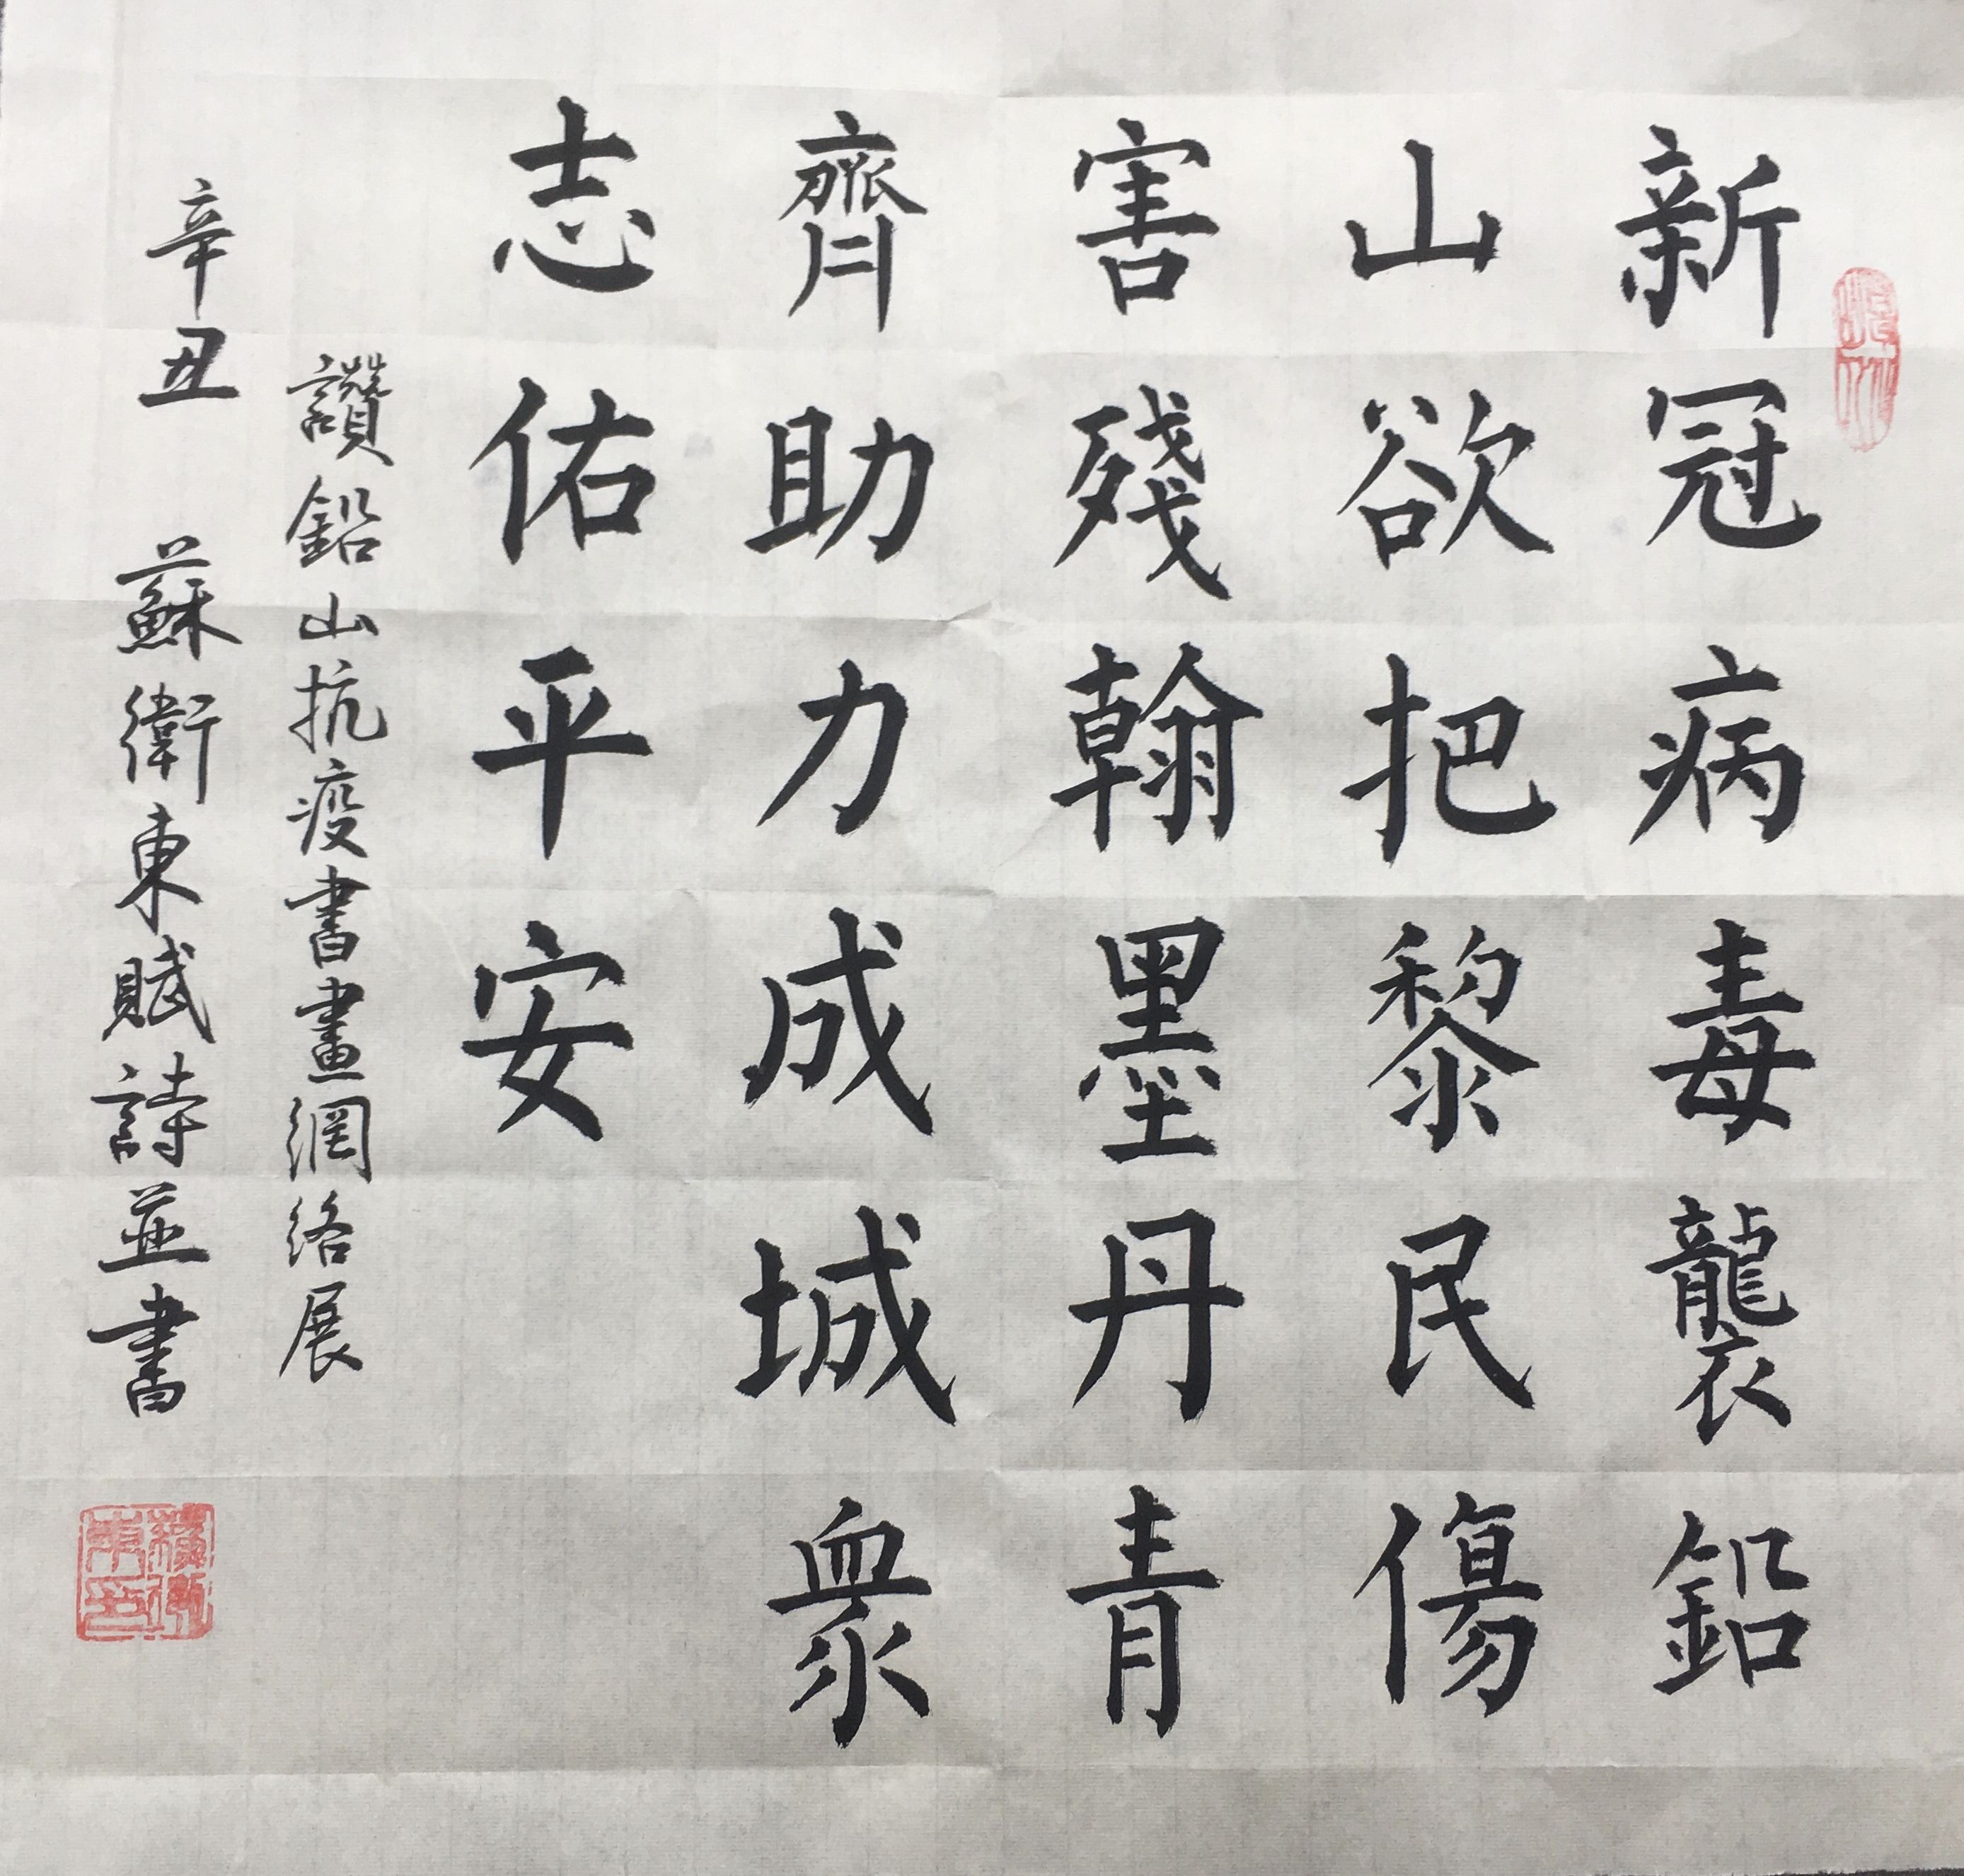 新冠病毒襲鉛
山欲把黎民傷
害殘翰墨丹青
齊助力成城眾
志佑平安
讚鉛山抗疫書畫網絡展
辛丑 蘇衛東賦詩並書